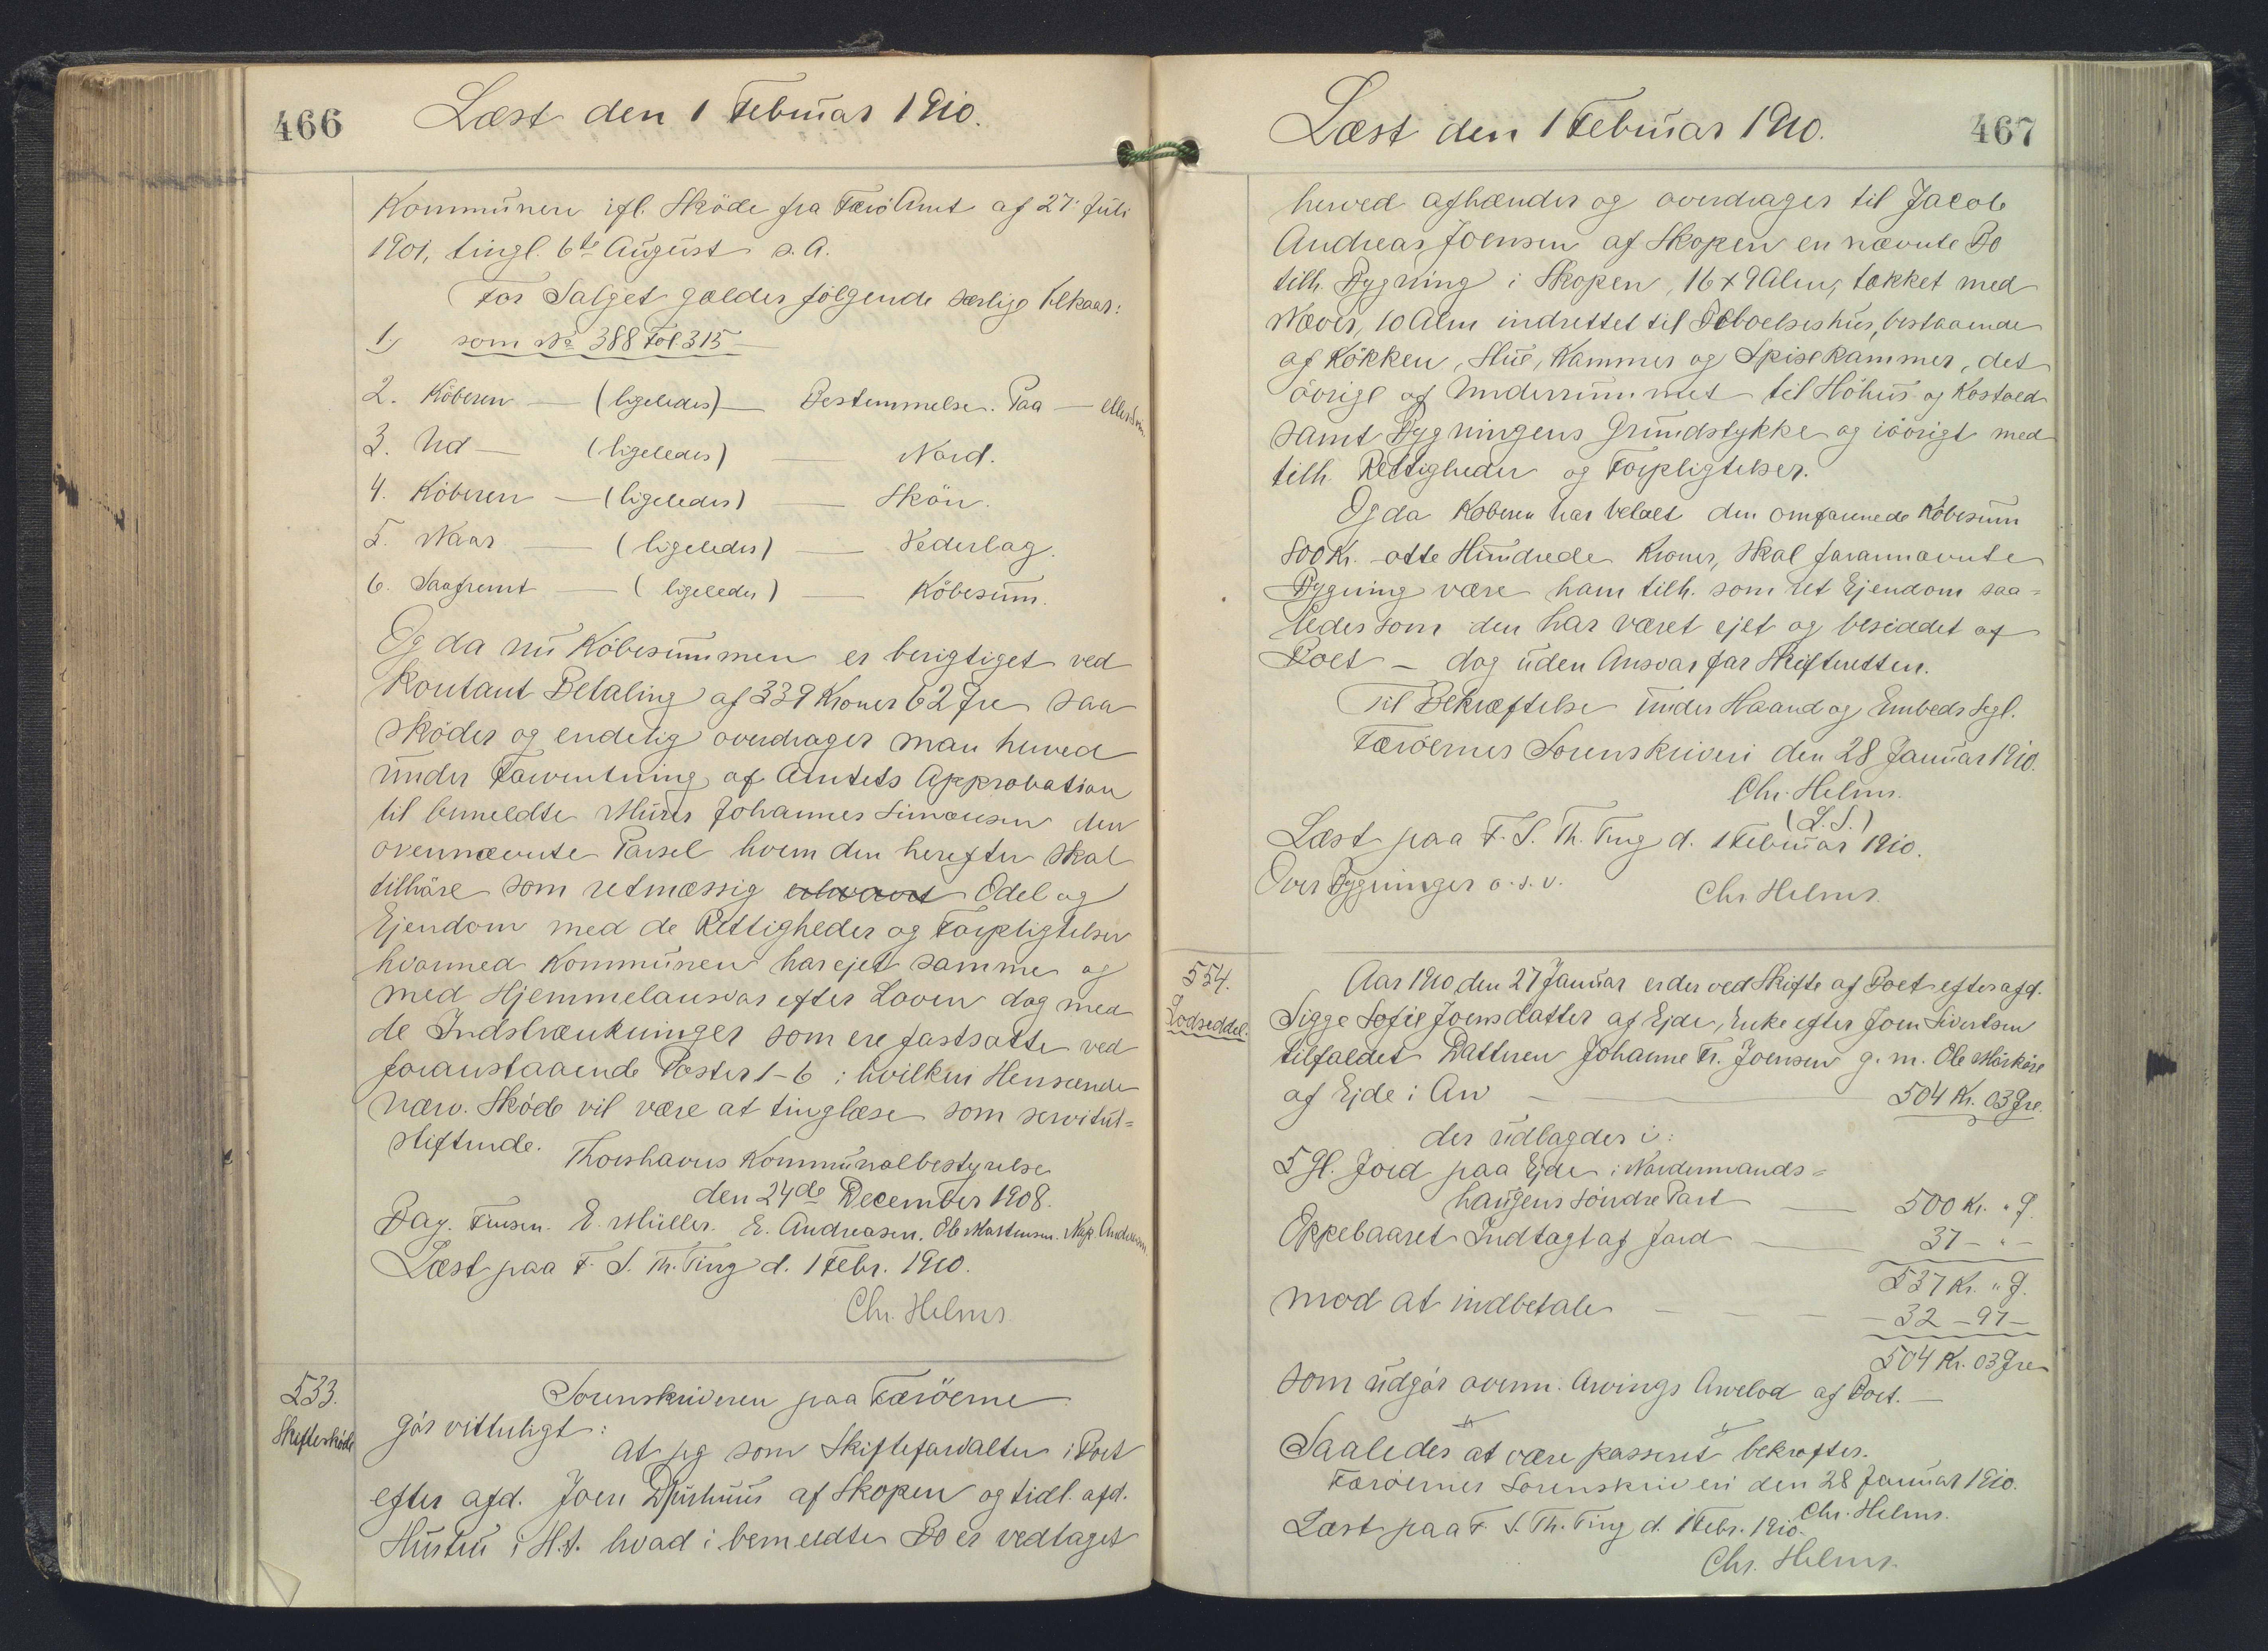 466
Læst den 1 Februar 1910.
Kommunen ifl. Sköde fra Færö Amt af 27. Juli
1901, tingl. 6te August s. A.
For Salget gælder følgende særlige Vilkaar:
1, som No 388 Fol. 315
2. Köberen — (ligeledes) — Bestemmelse. Paa — eller
3. Ved — (ligeledes) — Nord.
4. Köberen — (ligeledes) — Skön.
5. Naar — (ligeledes) — Vederlag.
6. Saafremt — (ligeledes) — Köbesum.
Og da nu Köbesummen er berigtiget ved
Kontant Betaling af 339 Kroner 62 Øre saa
sköder og endelig overdrager man herved
under Forventning af Amtets Approbation
til bemeldte Murer Johannes Simonsen den
ovennævnte Parsel hvem den herefter skal
tilhöre som retmæssig Odel og
Ejendom med de Rettigheder og Forpligtelser
hvormed Kommunen har ejet samme og
med Hjemmelansvar efter Loven dog med
de Indskrænkninger som ere fastsatte ved
foranstaaende Poster 1-6 i hvilken Henseende
nærv. Sköde vil være at tinglæse som servitut=
stiftende.
Thorshavns Kommunalbestyrelse
den 24de December 1908.
Bag. E. Müller. E. Andreasen. Ole Mortensen. Nap. Andreasen
Læst paa F. S. Th. Ting d. 1 Febr. 1910.
Chr. Helms
533.
Skifteskøde
Sorenskriveren paa Færöerne
Gör vitterligt:
at jeg som Skifteforvalter i Boet
efter afd. Joen Djurhuus af Skopen og tidl. afd.
Hustru i H.t. hvad i bemeldte Bo er vedtaget
Læst den 1 Februar 1910.
467
herved afhænder og overdrager til Jacob
Andreas Joensen af Skopen en nævnte Bo
tilh. Bygning i Skopen, 16 x 9 Alen, tækket med
Næver, 10 Alen indrettet til Beboelseshus, bestaaende
af Kökken, Stue, Kammer og Spisekammer, det
övrige af Underrummet til Höhus og Kostald
samt Bygningens Grundstykke og iövrigt med
tilh. Rettigheder og Forpligtelser.
Og da Køberen har betalt den omforenede Köbesum
800 Kr. otte Hundrede Kroner, skal forannævnte
Bygning være ham tilh. som ret Ejendom saa=
ledes som den har været ejet og besiddet af
Boet — dog uden Ansvar for Skifteretten.
Til Bekræftelse under Haand og Embeds Segl.
Færöernes Sorenskriveri den 28 Januar 1910.
Chr. Helms.
(L.S.)
Læst paa F. S. Th. Ting d. 1 Februar 1910.
Over Bygninger o. s. v.
Chr Helms.
554.
Lodseddel.
Aar 1910 den 27 Januar er der ved Skifte af Boet efter afd.
Sigge Sofie Joensdatter af Ejde, Enke efter Joen Sivertsen
tilfaldet Datteren Johanne Fr. Joensen g. m. Ole Mörköre
af Ejde i Arv — 504 Kr. 03 Øre.
der udlagdes i:
5 Gl. Jord paa Ejde i Nordenmands=
haugens söndre Part — 500 Kr. " Ø.
Oppebaaret Indtægt af Jord — 37 — " —
537 Kr. " Ø.
mod at indbetale — 32 — 97 —
504 Kr. 03 Øre
som udgör ovenn. Arvings Arvelod af Boet. —
Saaledes at være passeret bekræftes.
Færöernes Sorenskriveri den 28 Januar 1910.
Chr. Helms.
Læst paa F. S. Th. Ting d. 1 Febr. 1910.
Chr. Helms.